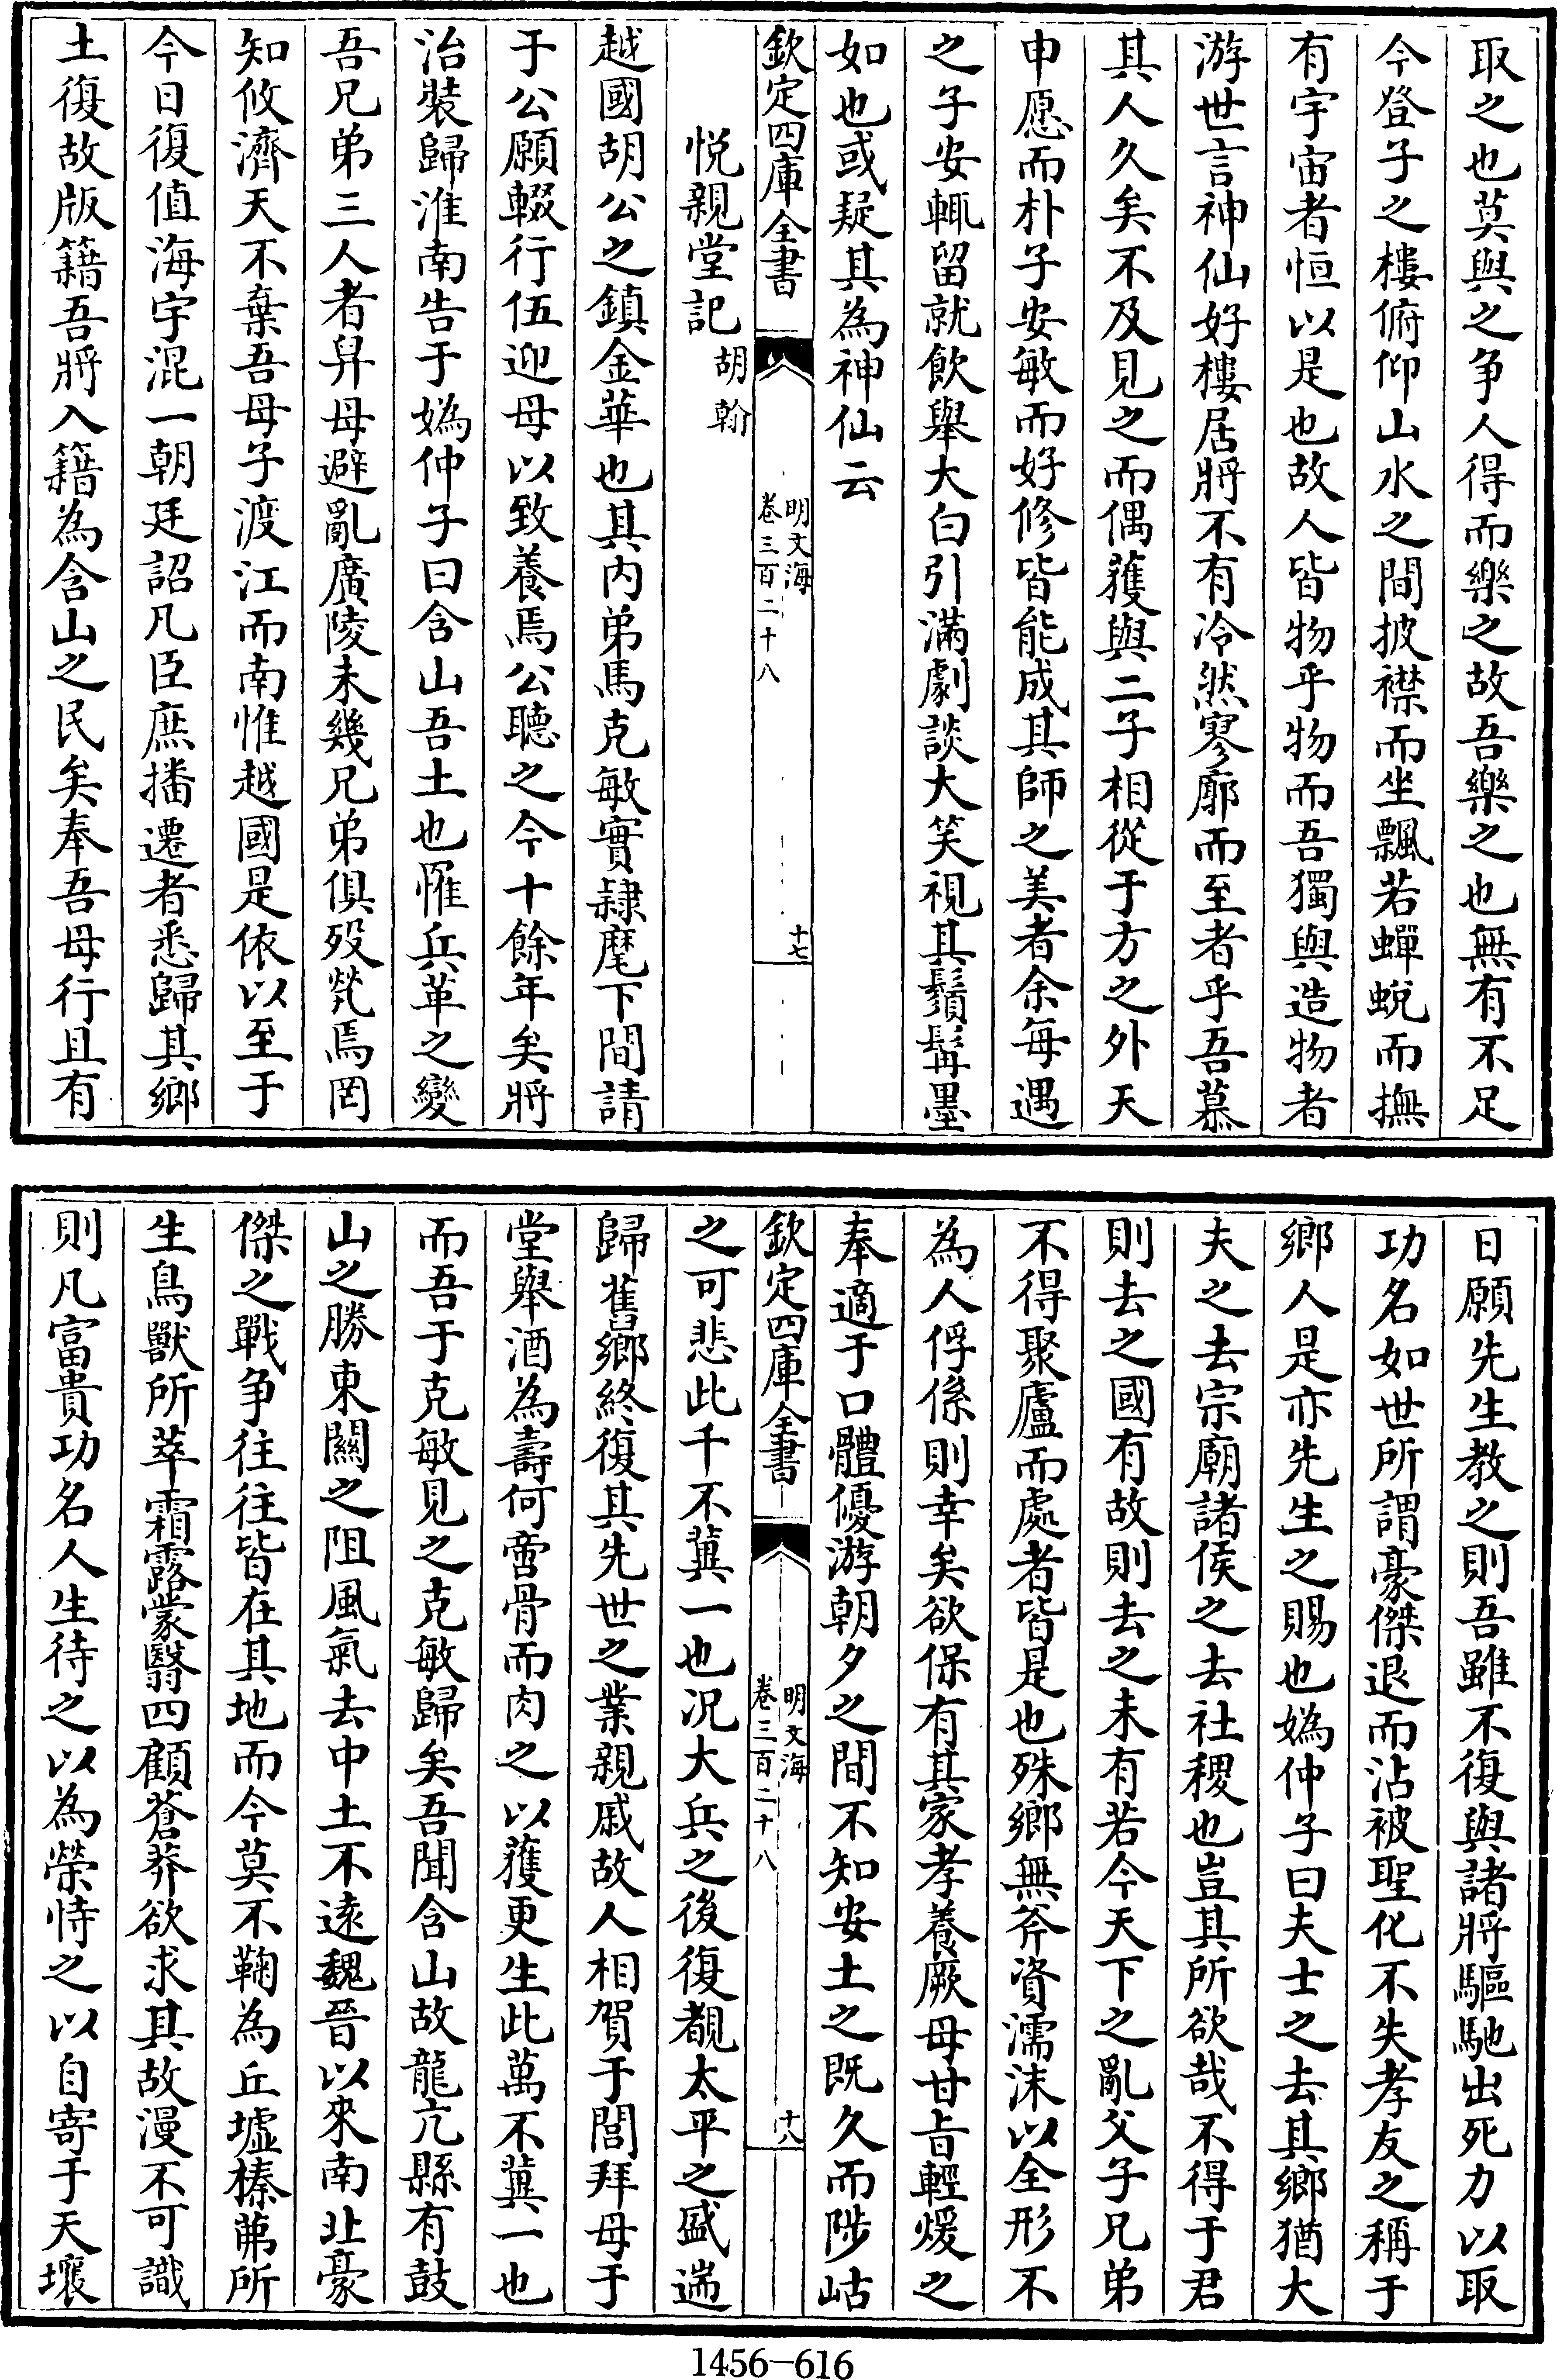 取之也莫與之争人得而樂之故吾樂之也無有不足
今登子之樓俯仰山水之間披襟而坐飄若蟬蛻而撫
有宇宙者恒以是也故人皆物乎物而吾獨與造物者
游世言神仙好樓居將不有冷然寥廓而至者乎吾慕
其人久矣不及見之而偶獲與二子相從于方之外天
申愿而朴子安敏而好修皆能成其師之美者余每遇
之子安輒留就飲舉大白引滿劇談大笑視其鬚髯墨
如也或疑其為神仙云
欽定四庫全書
明文海
卷三百二十八
十七
悦親堂記 胡翰
越國胡公之鎮金華也其内弟馬克敏實隷麾下間請
于公願輟行伍迎母以致養焉公聽之今十餘年矣將
治裝歸淮南告于嬀仲子曰含山吾土也罹兵革之變
吾兄弟三人者舁母避亂廣陵未幾兄弟俱殁煢焉罔
知攸濟天不棄吾母子渡江而南惟越國是依以至于
今日復值海宇混一朝廷詔凡臣庶播遷者悉歸其鄉
土復故版籍吾將入籍為含山之民矣奉吾母行且有
日願先生教之則吾雖不復與諸將驅馳出死力以取
功名如世所謂豪傑退而沾被聖化不失孝友之稱于
鄉人是亦先生之賜也嬀仲子曰夫士之去其鄉猶大
夫之去宗廟諸侯之去社稷也豈其所欲哉不得于君
則去之國有故則去之未有若今天下之亂父子兄弟
不得聚廬而處者皆是也殊鄉無斧資濡沫以全形不
為人俘係則幸矣欲保有其家孝養厥母甘㫖輕煖之
奉適于口體優游朝夕之間不知安土之既久而陟岵
欽定四庫全書
明文海
卷三百二十八
十八
之可悲此千不冀一也况大兵之後復覩太平之盛遄
歸舊鄉終復其先世之業親戚故人相賀于閭拜母于
堂舉酒為壽何啻骨而肉之以獲更生此萬不冀一也
而吾于克敏見之克敏歸矣吾聞含山故龍亢縣有鼓
山之勝東關之阻風氣去中土不逺魏晉以來南北豪
傑之戰争往往皆在其地而今莫不鞠為丘墟榛茀所
生鳥獸所萃霜露蒙翳四顧蒼莽欲求其故漫不可識
則凡富貴功名人生待之以為榮恃之以自寄于天壤
1456-616